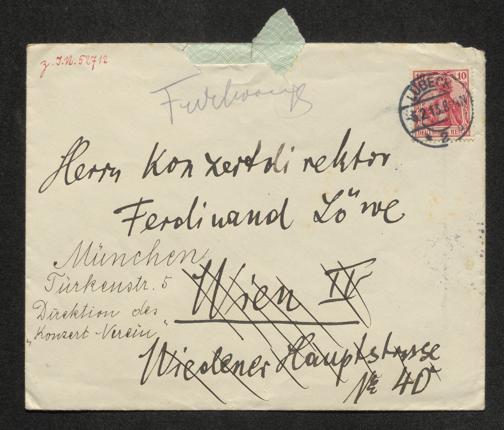 z. J. N. 52712
10
LÜBECK
2
Furtwängl
Herrn Konzertdirektor
Ferdinand Löwe
München
Türkenstr. 5
Direktion des
"Konzert-Verein"
Wien IV
Wiedener Hauptstrasse
№ 40